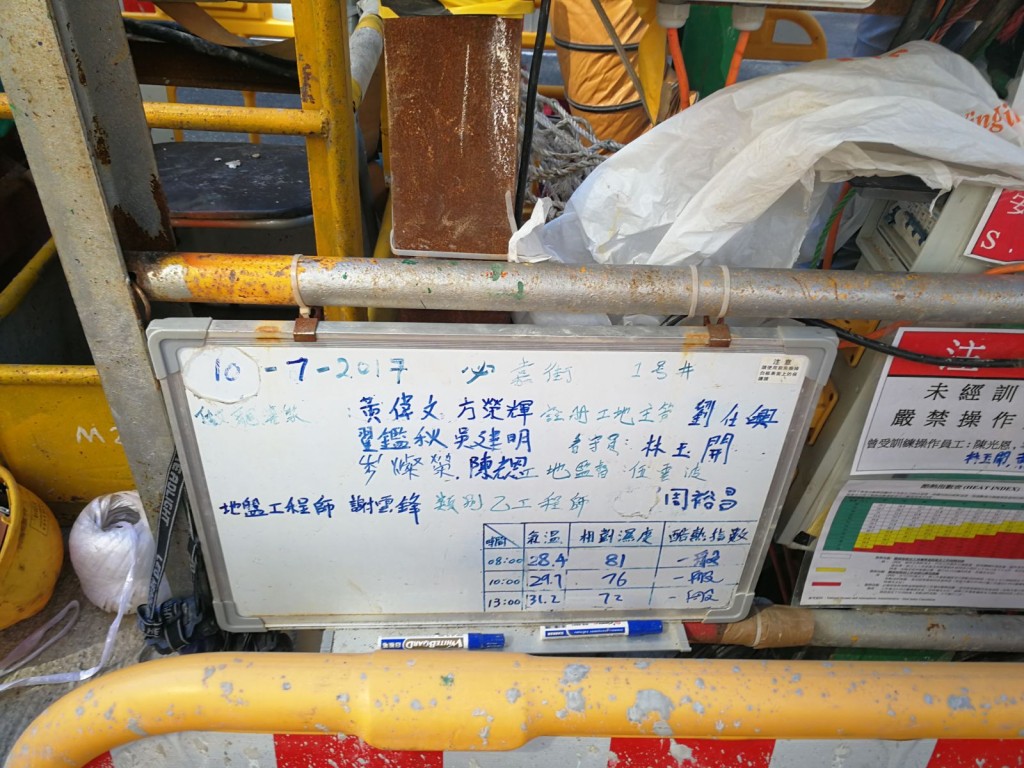 10-7-2017 嘉街 1号井
黃偉文 方榮輝 註册工地主管 劉仕興
翟鑑秋 吳建明 看守員: 林玉開
岑燦榮 陳 工地監督
地盤工程師 謝雲鋒 類別乙工程師 周裕昌
時間 氣温 相對濕度 酷熱指數
08:00 28.4 81 一般
10:00 29.7 76 一般
13:00 31.2 72 一般
WHITEBOARD
注意
注
未經訓
嚴禁操作
曾受訓練操作員工:陳光恩,
林玉開,
酷熱指數表 (HEAT INDEX)
Engi
S.